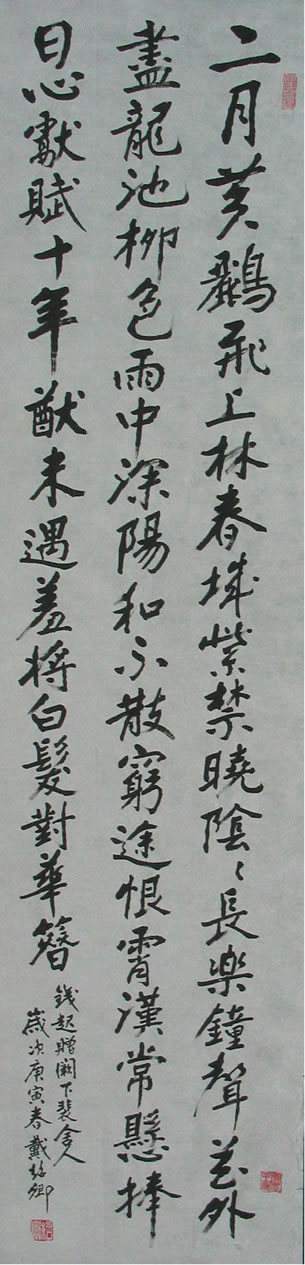 二月黃鸝飛上林春城紫禁曉陰々長樂鐘聲花外
盡龍池柳色雨中深陽和不散窮途恨霄漢常懸捧
日心獻賦十年猷未遇羞將白髮對華簪
錢起贈闕下裴舍人
歲次庚寅春戴卿